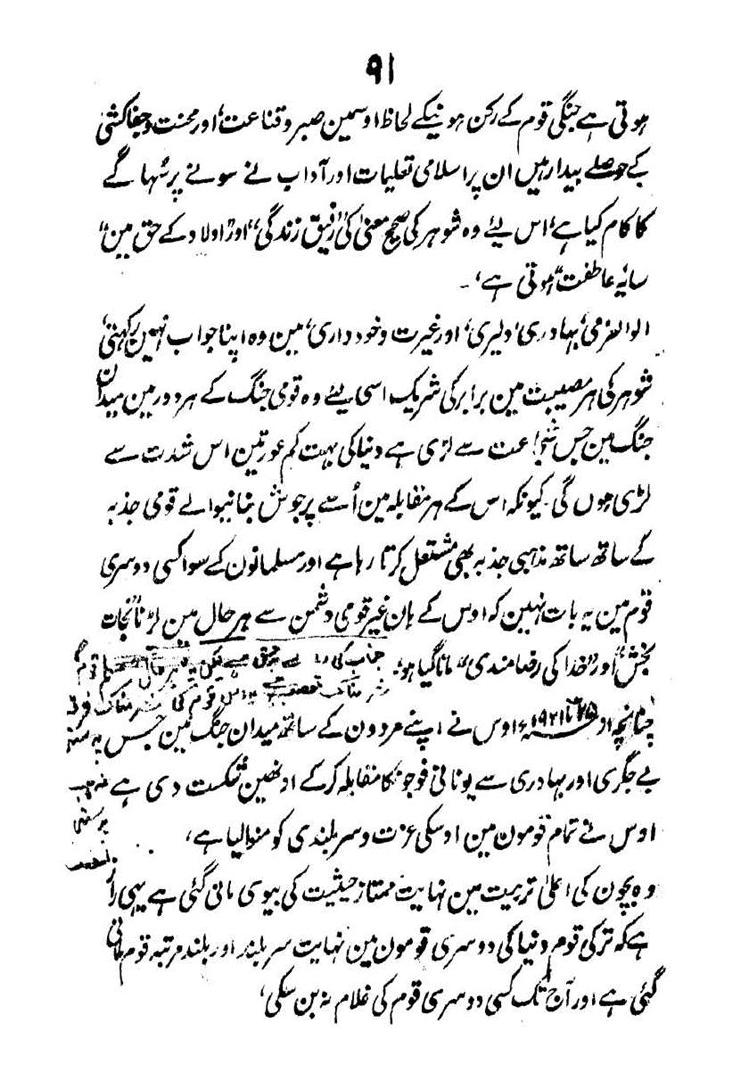 ۹۱
ہوتی ہے جنگی قوم کے رکن ہونیکے لحاظ اوسمین صبر و قناعت، اور محنت و جفا کشی
کے حوصلے بیدار ہیں ان پر اسلامی تعلیمات اور آداب نے سونے پر سُہا گے
کا کام کیا ہے، اس لیے وہ شوہر کی صحیح معنیٰ کی "رفیق زندگی" اور "اولاد کے حق مین"
سایۂ عاطفت" ہوتی ہے،۔
الوالعزمی، بہادری، دلیری، اور غیرت و خود داری، مین وہ اپنا جواب نہین رکہتی،
شوہر کی ہر مصیبت مین برابر کی شریک اسی لیے وہ قومی جنگ کے ہر دور مین میدان
جنگ مین جس شجاعت سے لڑی ہے دنیا کی بہت کم عورتین اس شدت سے
لڑی ہوں گی۔ کیونکہ اس کے ہر مقابلہ مین اُسے پرجوش بنانیوالے قومی جذبہ
کے ساتھ ساتھ مذہبی جذبہ بھی مشتعل کرتا رہا ہے اور مسلمانون کے سوا کسی دوسری
قوم مین یہ بات نہین کہ اوس کے ہان غیر قومی دشمن سے ہر حال مین لڑنا "نجات
بخش" اور "خدا کی رضا مندی" مانا گیا ہو،
چنانچہ ۱۹۲۱ء اوس نے اپنے مردون کے ساتھ میدان جنگ مین جس
بے جگری اور بہادری سے یونانی فوجونکا مقابلہ کرکے اونھین شکست دی ہے
اوس نے تمام قومون مین اوسکی عزت و سر بلندی کو منوالیا ہے،
وہ بچون کی اعلیٰ تربیت مین نہایت ممتاز حیثیت کی بیوی مانی گئی ہے یہی راز
ہے کہ ترکی قوم دنیا کی دوسری قومون مین نہایت سر بلند اور بلند مرتبہ قوم مانی
گئی ہے اور آج تک کسی دوسری قوم کی غلام نہ بن سکی،